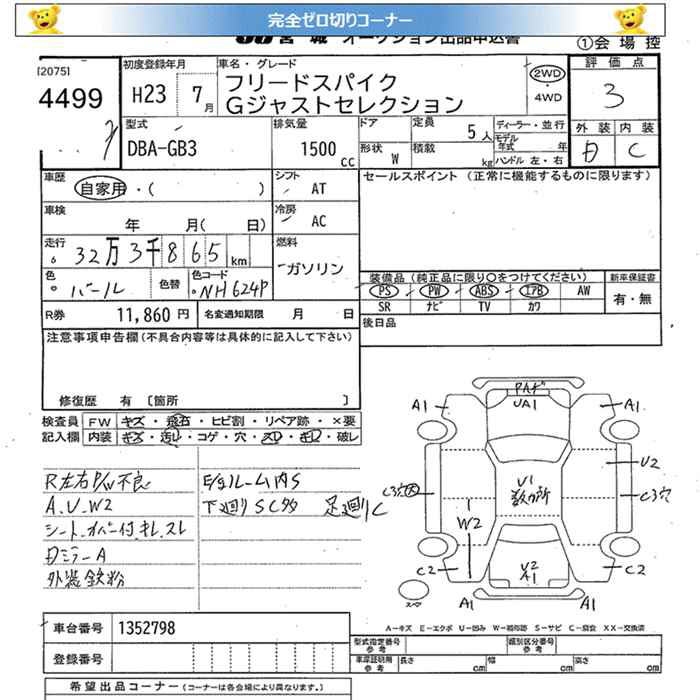 完全ゼロ切りコーナー
宮城 オークション出品申込書
①会場控
[2075]
4499
初度登録年月
H23 7月
車名・グレード
フリードスパイク
Gジャストセレクション
2WD
・4WD
評価点
3
外装 内装
D C
型式
DBA-GB3
排気量
1500cc
ドア
定員 5人
形状 W
積載 kg
ディーラー・並行
モデル年式 年
ハンドル 左・右
車歴
自家用・( )
シフト AT
車検
年 月( 日)
冷房 AC
走行
32万3千865km
燃料
ガソリン
色
パール
色替
色コード
NH624P
R券 11,860円
名変通知期限 月 日
セールスポイント (正常に機能するものに限ります)
装備品(純正品に限り○をつけてください)
PS PW ABS エアB AW
SR ナビ TV カワ
新車保証書
有・無
後日品
注意事項申告欄(不具合内容等は具体的に記入して下さい)
修復歴 有〔箇所 〕
検査員記入欄
FW キズ・飛石・ヒビ割・リペア跡・×要
内装 キズ・汚れ・コゲ・穴・スレ・キレ・破レ
R左右P/W不良
A.U.W2
シート.カバー付.キレ.スレ
Dミラー A
外装鉄粉
E/gルーム内S
下廻りSC多 足廻りC
A1
A1
UA1
U2
C3穴
U1
数カ所
W2
C2
C2
U2
A1
A1
A1
スペア
A－キズ E－エクボ U－凹み W－補修跡 S－サビ C－腐食 XX－交換済
車台番号 1352798
登録番号
型式指定番号 参考
類別区分番号 参考
車庫証明用 参考
長さ cm
幅 cm
高さ cm
希望出品コーナー(コーナーは各会場により異なります。)